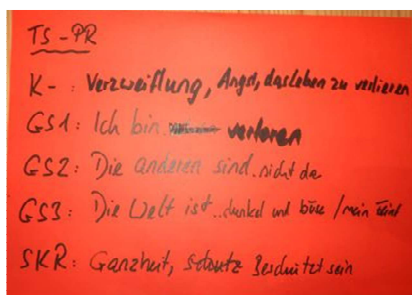 TS-PR
K- : Verzweiflung, Angst, das Leben zu verlieren
GS1: Ich bin verloren
GS2: Die anderen sind..nicht da
GS3: Die Welt ist...dunkel und böse / mein
SKR: Ganzheit, Schutz Beschützt sein